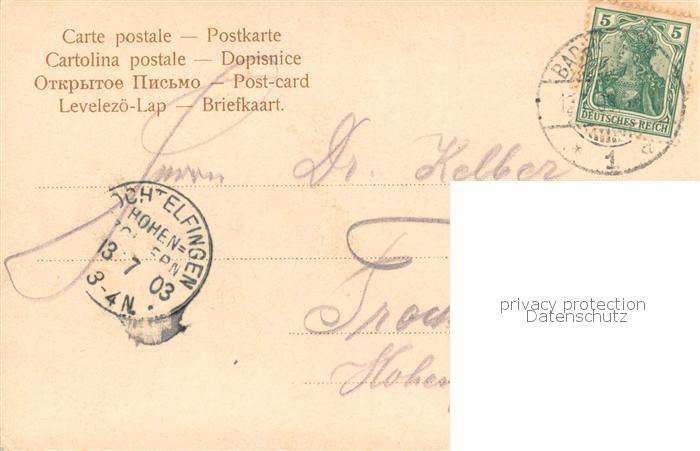 Carte postale — Postkarte
Cartolina postale — Dopisnice
Открытое Письмо — Post-card
Levelezö-Lap — Briefkaart.
5 5
DEUTSCHES REICH
BAD
* 1 a
Herrn Dr. Kelber
OCHTELFINGEN
HOHEN=
ERN
13 7 03
3-4 N.
privacy protection
Datenschutz